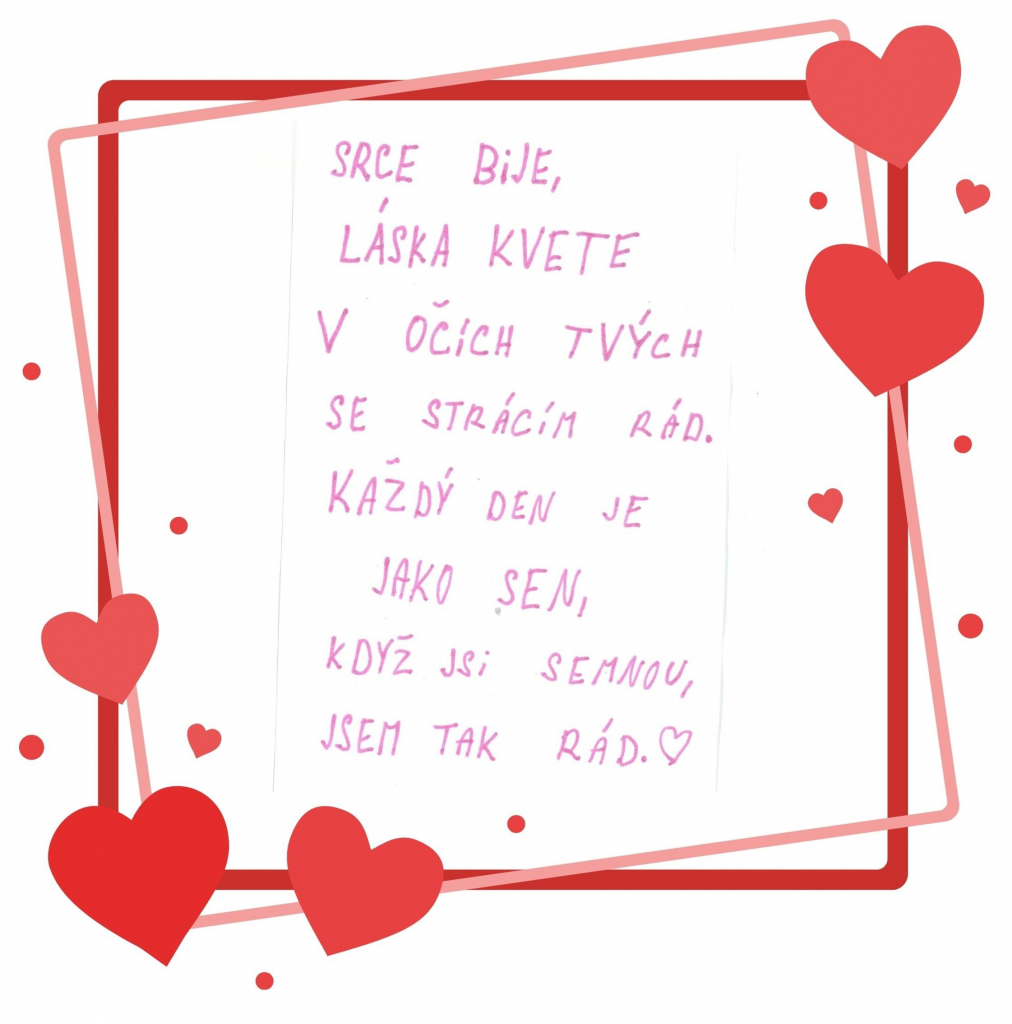 SRCE BiJE,
LÁSKA KVETE
V OČÍCH TVÝCH
SE STRÁCÍM RÁD.
KAŽDÝ DEN JE
JAKO SEN,
KDYŽ JSi SEMNOU,
JSEM TAK RÁD.♡